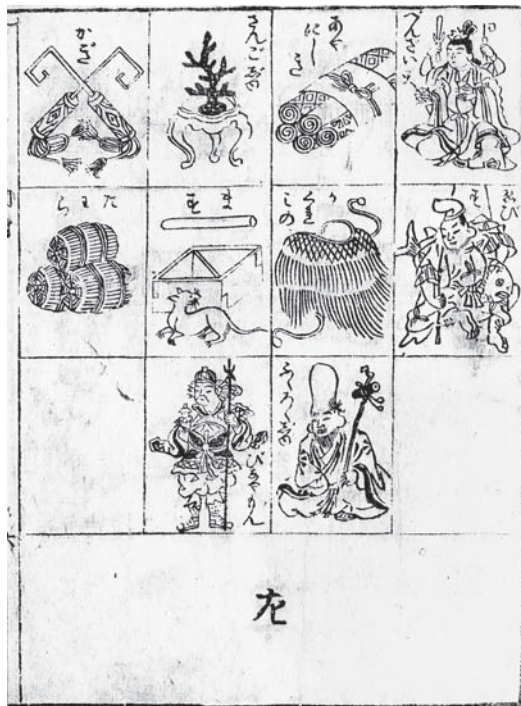 べんざいてん
あや
にしき
さんごじゆ
かぎ
ゑび
す
かくれ
みの
ます
たわら
ふくろくじゆ
びしやもん
左